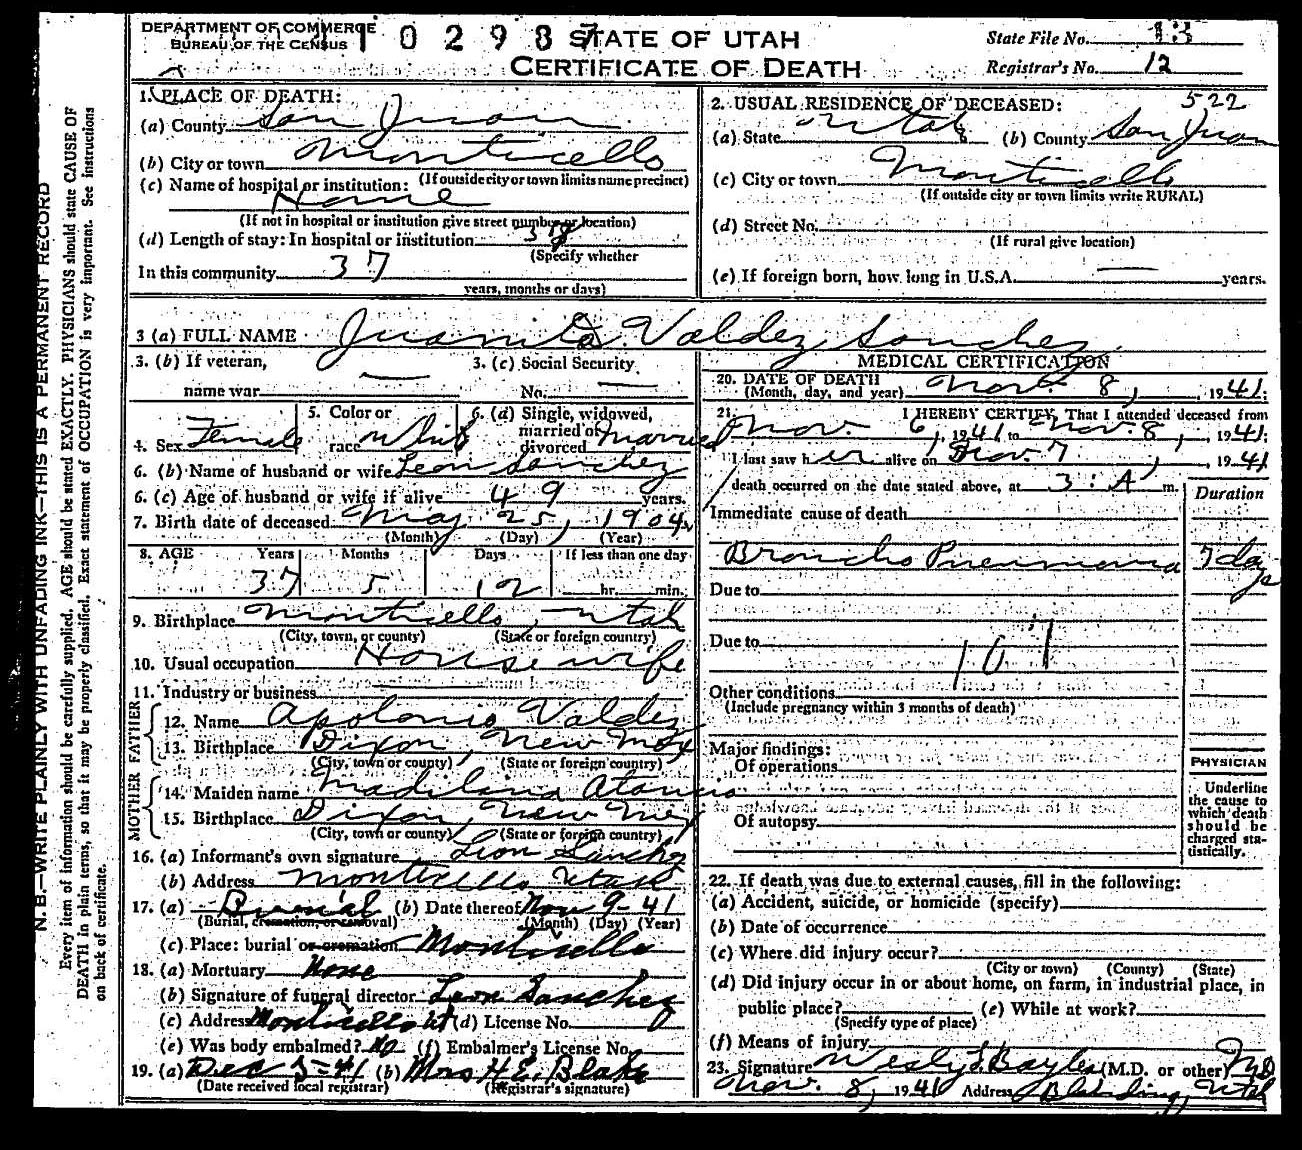 DEPARTMENT OF COMMERCE
BUREAU OF THE CENSUS
10298
STATE OF UTAH
CERTIFICATE OF DEATH
State File No. 13
Registrar's No. 12
N. B.—WRITE PLAINLY WITH UNFADING INK—THIS IS A PERMANENT RECORD
Every item of information should be carefully supplied. AGE should be stated EXACTLY. PHYSICIANS should state CAUSE OF
DEATH in plain terms, so that it may be properly classified. Exact statement of OCCUPATION is very important. See instructions
on back of certificate.
1. PLACE OF DEATH:
(a) County San Juan
(b) City or town Monticello
(If outside city or town limits name precinct)
(c) Name of hospital or institution:
Home
(If not in hospital or institution give street number or location)
(d) Length of stay: In hospital or institution
(Specify whether
In this community 37
years, months or days)
2. USUAL RESIDENCE OF DECEASED: 522
(a) State Utah (b) County San Juan
(c) City or town Monticello
(If outside city or town limits write RURAL)
(d) Street No.
(If rural give location)
(e) If foreign born, how long in U.S.A. — years.
3 (a) FULL NAME Juanita Valdez Sanchez
3. (b) If veteran,
name war —
3. (c) Social Security
No. —
4. Sex Female
5. Color or
race White
6. (a) Single, widowed,
married or
divorced Married
6. (b) Name of husband or wife Leon Sanchez
6. (c) Age of husband or wife if alive 49 years.
7. Birth date of deceased May 25, 1904
(Month) (Day) (Year)
8. AGE Years Months Days If less than one day
37 5 12 hr. min.
9. Birthplace Monticello, Utah
(City, town, or county) (State or foreign country)
10. Usual occupation Housewife
11. Industry or business
FATHER
12. Name Apolonio Valdez
13. Birthplace Dixon, New Mex
(City, town or county) (State or foreign country)
MOTHER
14. Maiden name Madilina
15. Birthplace Dixon, New Mex
(City, town or county) (State or foreign country)
16. (a) Informant's own signature Leon Sanchez
(b) Address Monticello Utah
17. (a) Burial (b) Date thereof Nov 9-41
(Burial, cremation, or removal) (Month) (Day) (Year)
(c) Place: burial or cremation Monticello
18. (a) Mortuary None
(b) Signature of funeral director Leon Sanchez
(c) Address Monticello Ut (d) License No.
(e) Was body embalmed? No (f) Embalmer's License No.
19. (a) Dec 3-41 (b) Mrs H. E. Blake
(Date received local registrar) (Registrar's signature)
MEDICAL CERTIFICATION
20. DATE OF DEATH
(Month, day, and year) Nov. 8, 1941.
21. I HEREBY CERTIFY, That I attended deceased from
Nov. 6, 1941 to Nov. 8, 1941;
I last saw her alive on Nov. 7, 1941
death occurred on the date stated above, at 3:A m.
Duration
Immediate cause of death
Broncho Pneumonia 7 days
Due to
Due to
107
Other conditions
(Include pregnancy within 3 months of death)
Major findings:
Of operations
Of autopsy
PHYSICIAN
Underline
the cause to
which death
should be
charged sta-
tistically.
22. If death was due to external causes, fill in the following:
(a) Accident, suicide, or homicide (specify)
(b) Date of occurrence
(c) Where did injury occur?
(City or town) (County) (State)
(d) Did injury occur in or about home, on farm, in industrial place, in
public place? (e) While at work?
(Specify type of place)
(f) Means of injury
23. Signature Bayles (M.D. or other) MD
Nov. 8, 1941 Address Blanding, Utah